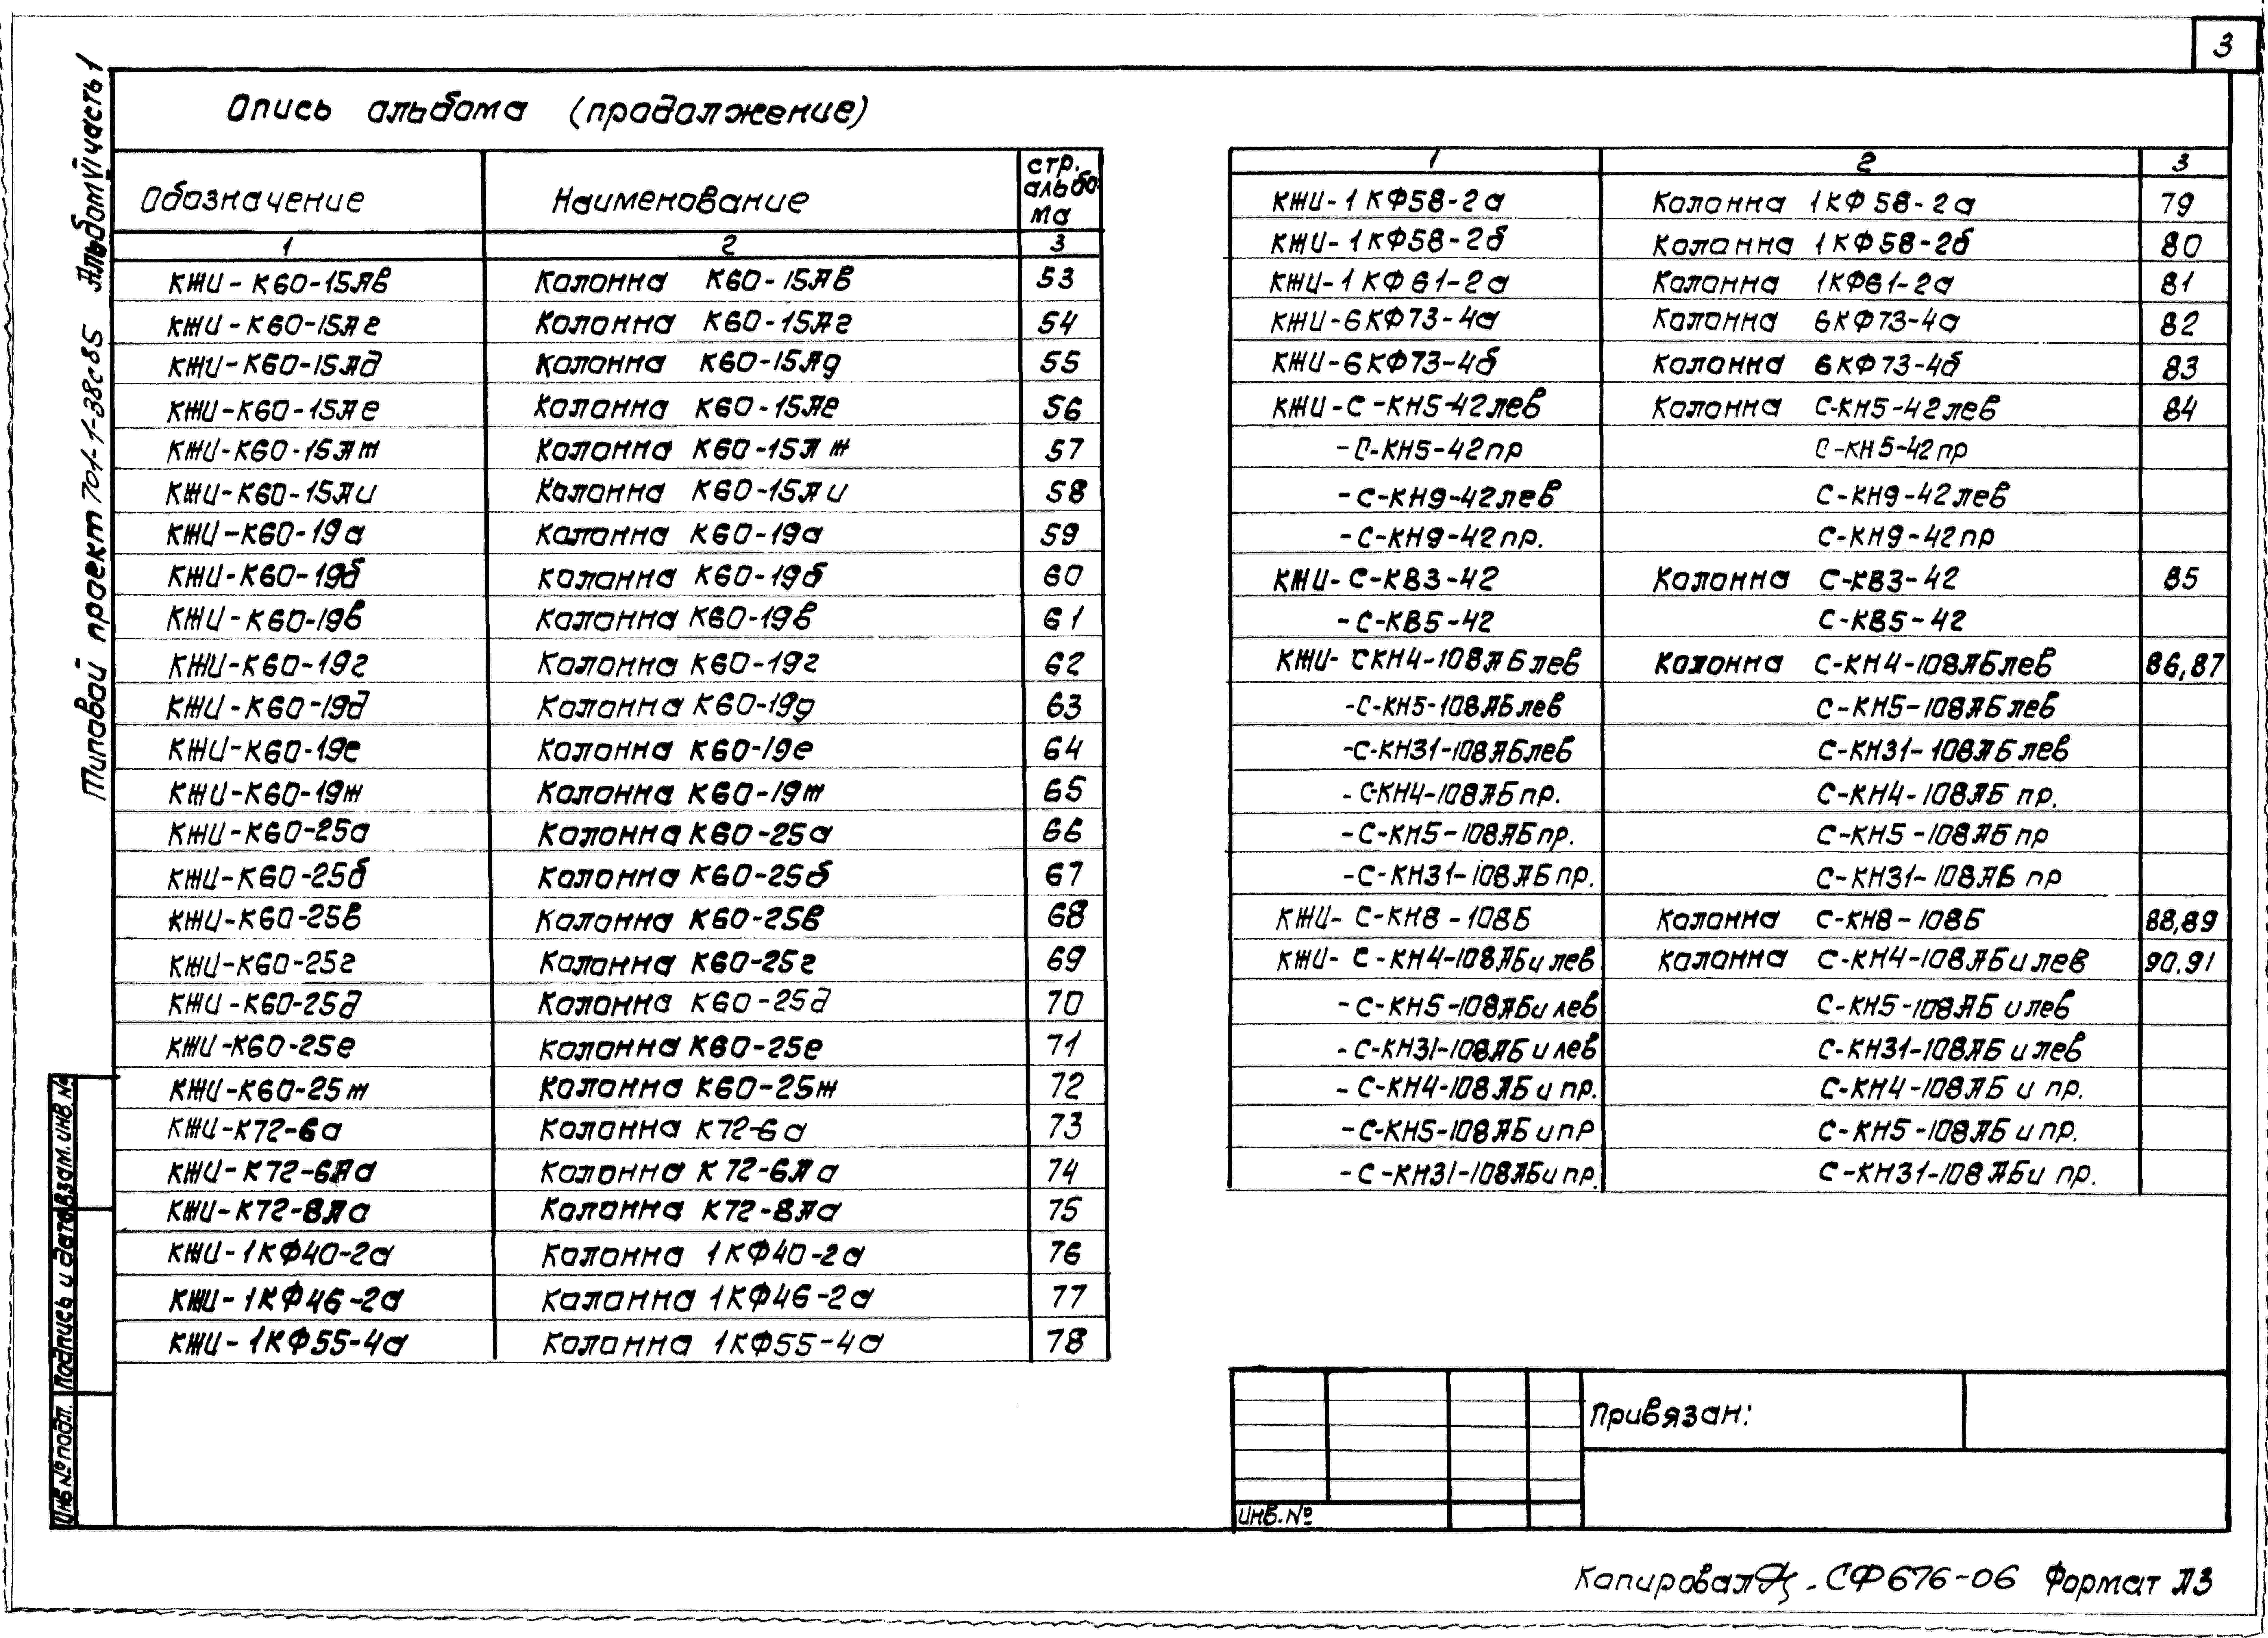 3
Типовой проект 701-1-38с85 Альбом VI часть 1
Опись альбома (продолжение)
Обозначение Наименование стр. альбо-ма
1 2 3
КЖИ-К60-15Яв Колонна К60-15Яв 53
КЖИ-К60-15Яг Колонна К60-15Яг 54
КЖИ-К60-15Яд Колонна К60-15Яд 55
КЖИ-К60-15Яе Колонна К60-15Яе 56
КЖИ-К60-15Яж Колонна К60-15Яж 57
КЖИ-К60-15Яи Колонна К60-15Яи 58
КЖИ-К60-19а Колонна К60-19а 59
КЖИ-К60-19б Колонна К60-19б 60
КЖИ-К60-19в Колонна К60-19в 61
КЖИ-К60-19г Колонна К60-19г 62
КЖИ-К60-19д Колонна К60-19д 63
КЖИ-К60-19е Колонна К60-19е 64
КЖИ-К60-19ж Колонна К60-19ж 65
КЖИ-К60-25а Колонна К60-25а 66
КЖИ-К60-25б Колонна К60-25б 67
КЖИ-К60-25в Колонна К60-25в 68
КЖИ-К60-25г Колонна К60-25г 69
КЖИ-К60-25д Колонна К60-25д 70
КЖИ-К60-25е Колонна К60-25е 71
КЖИ-К60-25ж Колонна К60-25ж 72
КЖИ-К72-6а Колонна К72-6а 73
КЖИ-К72-6Яа Колонна К72-6Яа 74
КЖИ-К72-8Яа Колонна К72-8Яа 75
КЖИ-1КФ40-2а Колонна 1КФ40-2а 76
КЖИ-1КФ46-2а Колонна 1КФ46-2а 77
КЖИ-1КФ55-4а Колонна 1КФ55-4а 78
1 2 3
КЖИ-1КФ58-2а Колонна 1КФ58-2а 79
КЖИ-1КФ58-2б Колонна 1КФ58-2б 80
КЖИ-1КФ61-2а Колонна 1КФ61-2а 81
КЖИ-6КФ73-4а Колонна 6КФ73-4а 82
КЖИ-6КФ73-4б Колонна 6КФ73-4б 83
КЖИ-С-КН5-42лев Колонна С-КН5-42лев 84
-С-КН5-42пр С-КН5-42пр
-С-КН9-42лев С-КН9-42лев
-С-КН9-42пр. С-КН9-42пр
КЖИ-С-КВ3-42 Колонна С-КВ3-42 85
-С-КВ5-42 С-КВ5-42
КЖИ-СКН4-108ЯБлев Колонна С-КН4-108ЯБлев 86,87
-С-КН5-108ЯБлев С-КН5-108ЯБлев
-С-КН31-108ЯБлев С-КН31-108ЯБлев
-СКН4-108ЯБпр. С-КН4-108ЯБ пр.
-С-КН5-108ЯБпр. С-КН5-108ЯБ пр
-С-КН31-108ЯБпр. С-КН31-108ЯБ пр
КЖИ-С-КН8-108Б Колонна С-КН8-108Б 88,89
КЖИ-С-КН4-108ЯБи лев Колонна С-КН4-108ЯБи лев 90.91
-С-КН5-108ЯБи лев С-КН5-108ЯБ и лев
-С-КН31-108ЯБ и лев С-КН31-108ЯБ и лев
-С-КН4-108ЯБ и пр. С-КН4-108ЯБ и пр.
-С-КН5-108ЯБ и пр С-КН5-108ЯБ и пр.
-С-КН31-108ЯБи пр. С-КН31-108ЯБи пр.
Привязан:
Инв.№
Инв № подл. Подпись и дата Взам. инв №
Копировал СФ676-06 Формат Я3